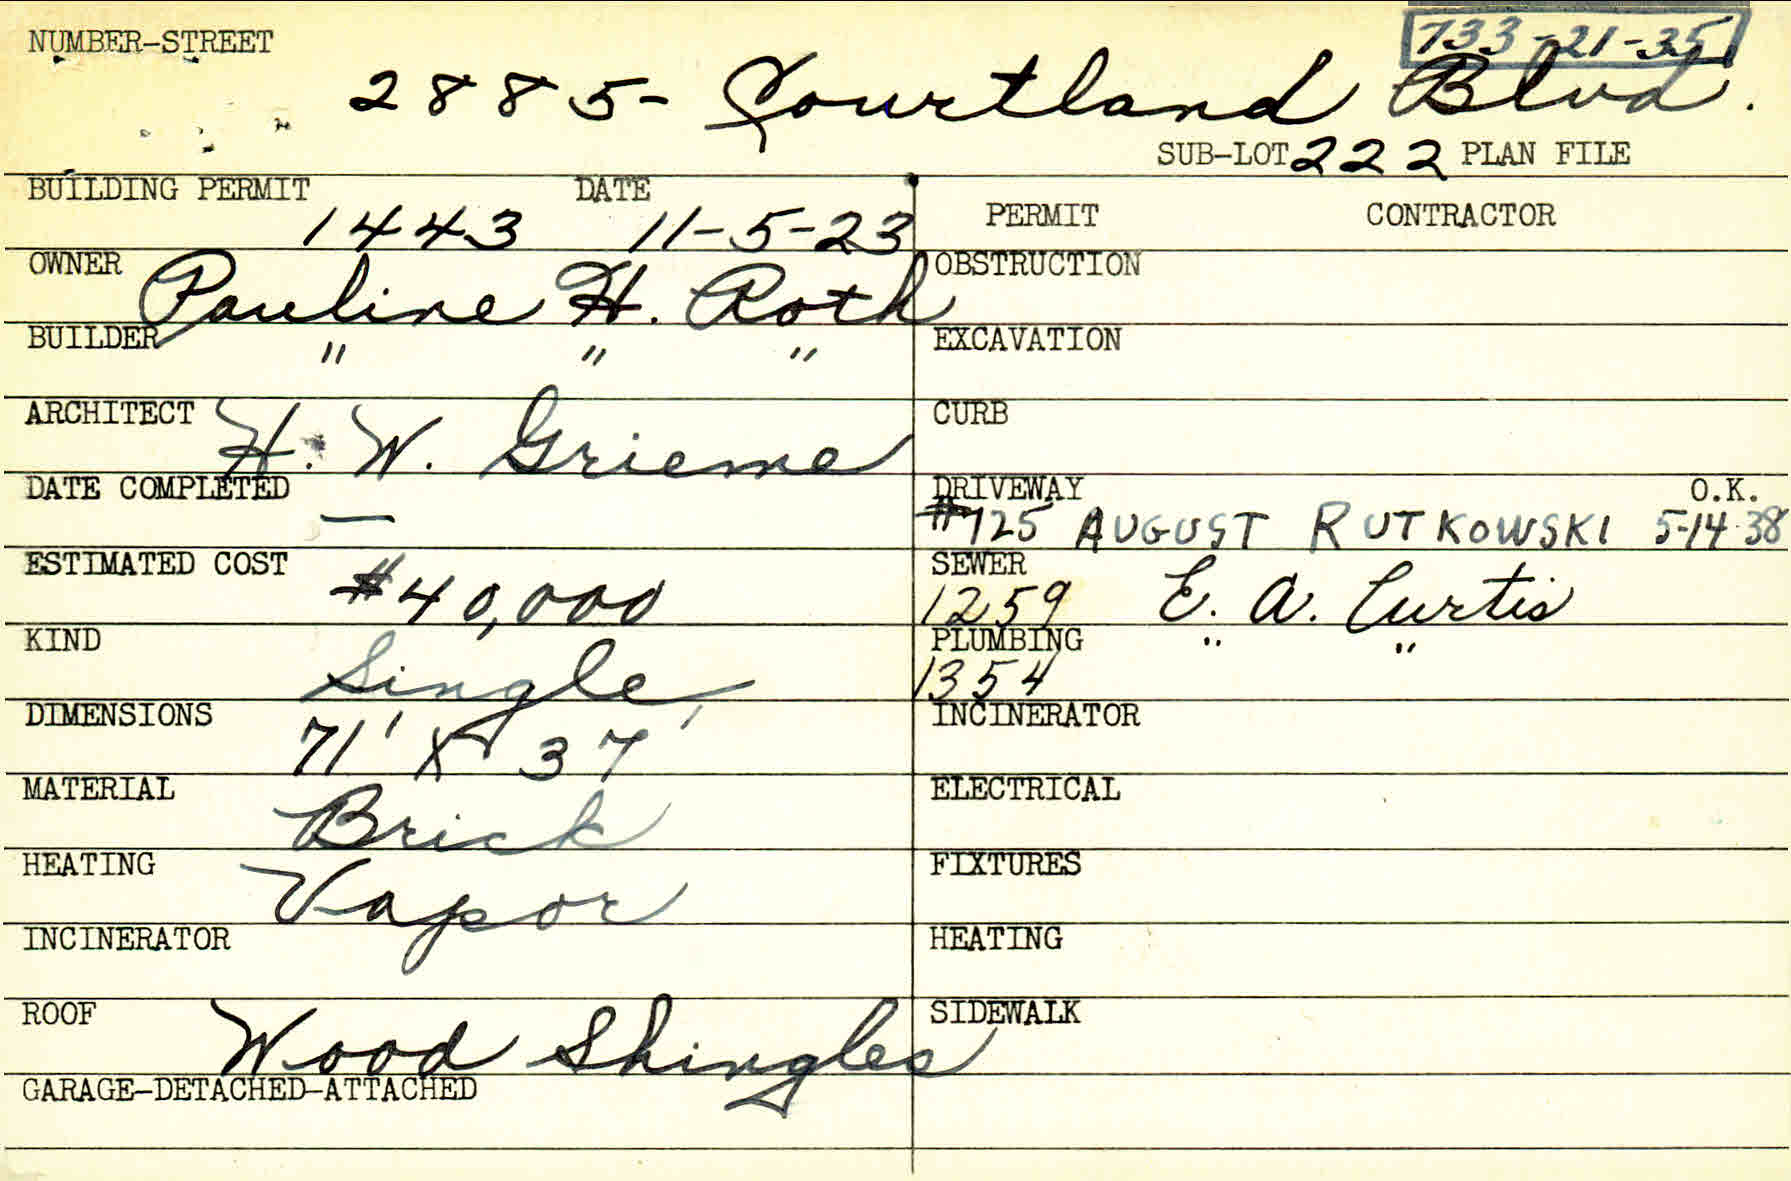 733-21-35
NUMBER-STREET
2885- Courtland Blvd.
SUB-LOT 222 PLAN FILE
BUILDING PERMIT 1443 DATE 11-5-23
PERMIT CONTRACTOR
OWNER Pauline H. Roth
OBSTRUCTION
BUILDER " " "
EXCAVATION
ARCHITECT H. W. Grieme
CURB
DATE COMPLETED —
DRIVEWAY O.K.
#725 AUGUST RUTKOWSKI 5-14-38
ESTIMATED COST #40,000
SEWER
1259 E. A. Curtis
KIND Single
PLUMBING " "
1354
DIMENSIONS 71' X 37'
INCINERATOR
MATERIAL Brick
ELECTRICAL
HEATING Vapor
FIXTURES
INCINERATOR
HEATING
ROOF Wood Shingles
SIDEWALK
GARAGE-DETACHED-ATTACHED